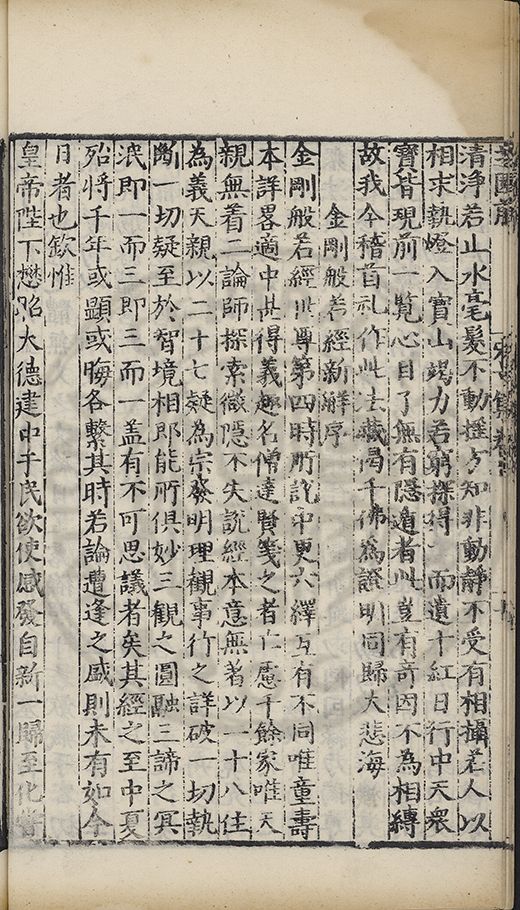 清淨若止水毫髮不動搖了知非動靜不受有相攝若人以
相求執燈入寶山竭力若窮探得一而遺十紅日行中天衆
寶皆現前一覽心目了無有隱遁者此豈有奇因不為相縛
故我今稽首礼作此法藏偈千佛為證明同歸大悲海
金剛般若經新解序
金剛般若經世尊第四時所說中更六繹互有不同唯童壽
本詳畧適中甚得義趣名僧達賢箋之者亡慮千餘家唯天
親無着二論師探索微隱不失說經本意無著以一十八住
為義天親以二十七疑為宗發明理觀事行之詳破一切執
斷一切疑至於智境相即能所俱妙三觀之圓融三諦之冥
泯即一而三即三而一盖有不可思議者矣其經之至中夏
殆將千年或顯或晦各繫其時若論遭逢之盛則未有如今
日者也欽惟
皇帝陛下懋昭大德建中于民欲使感發自新一歸至化嘗